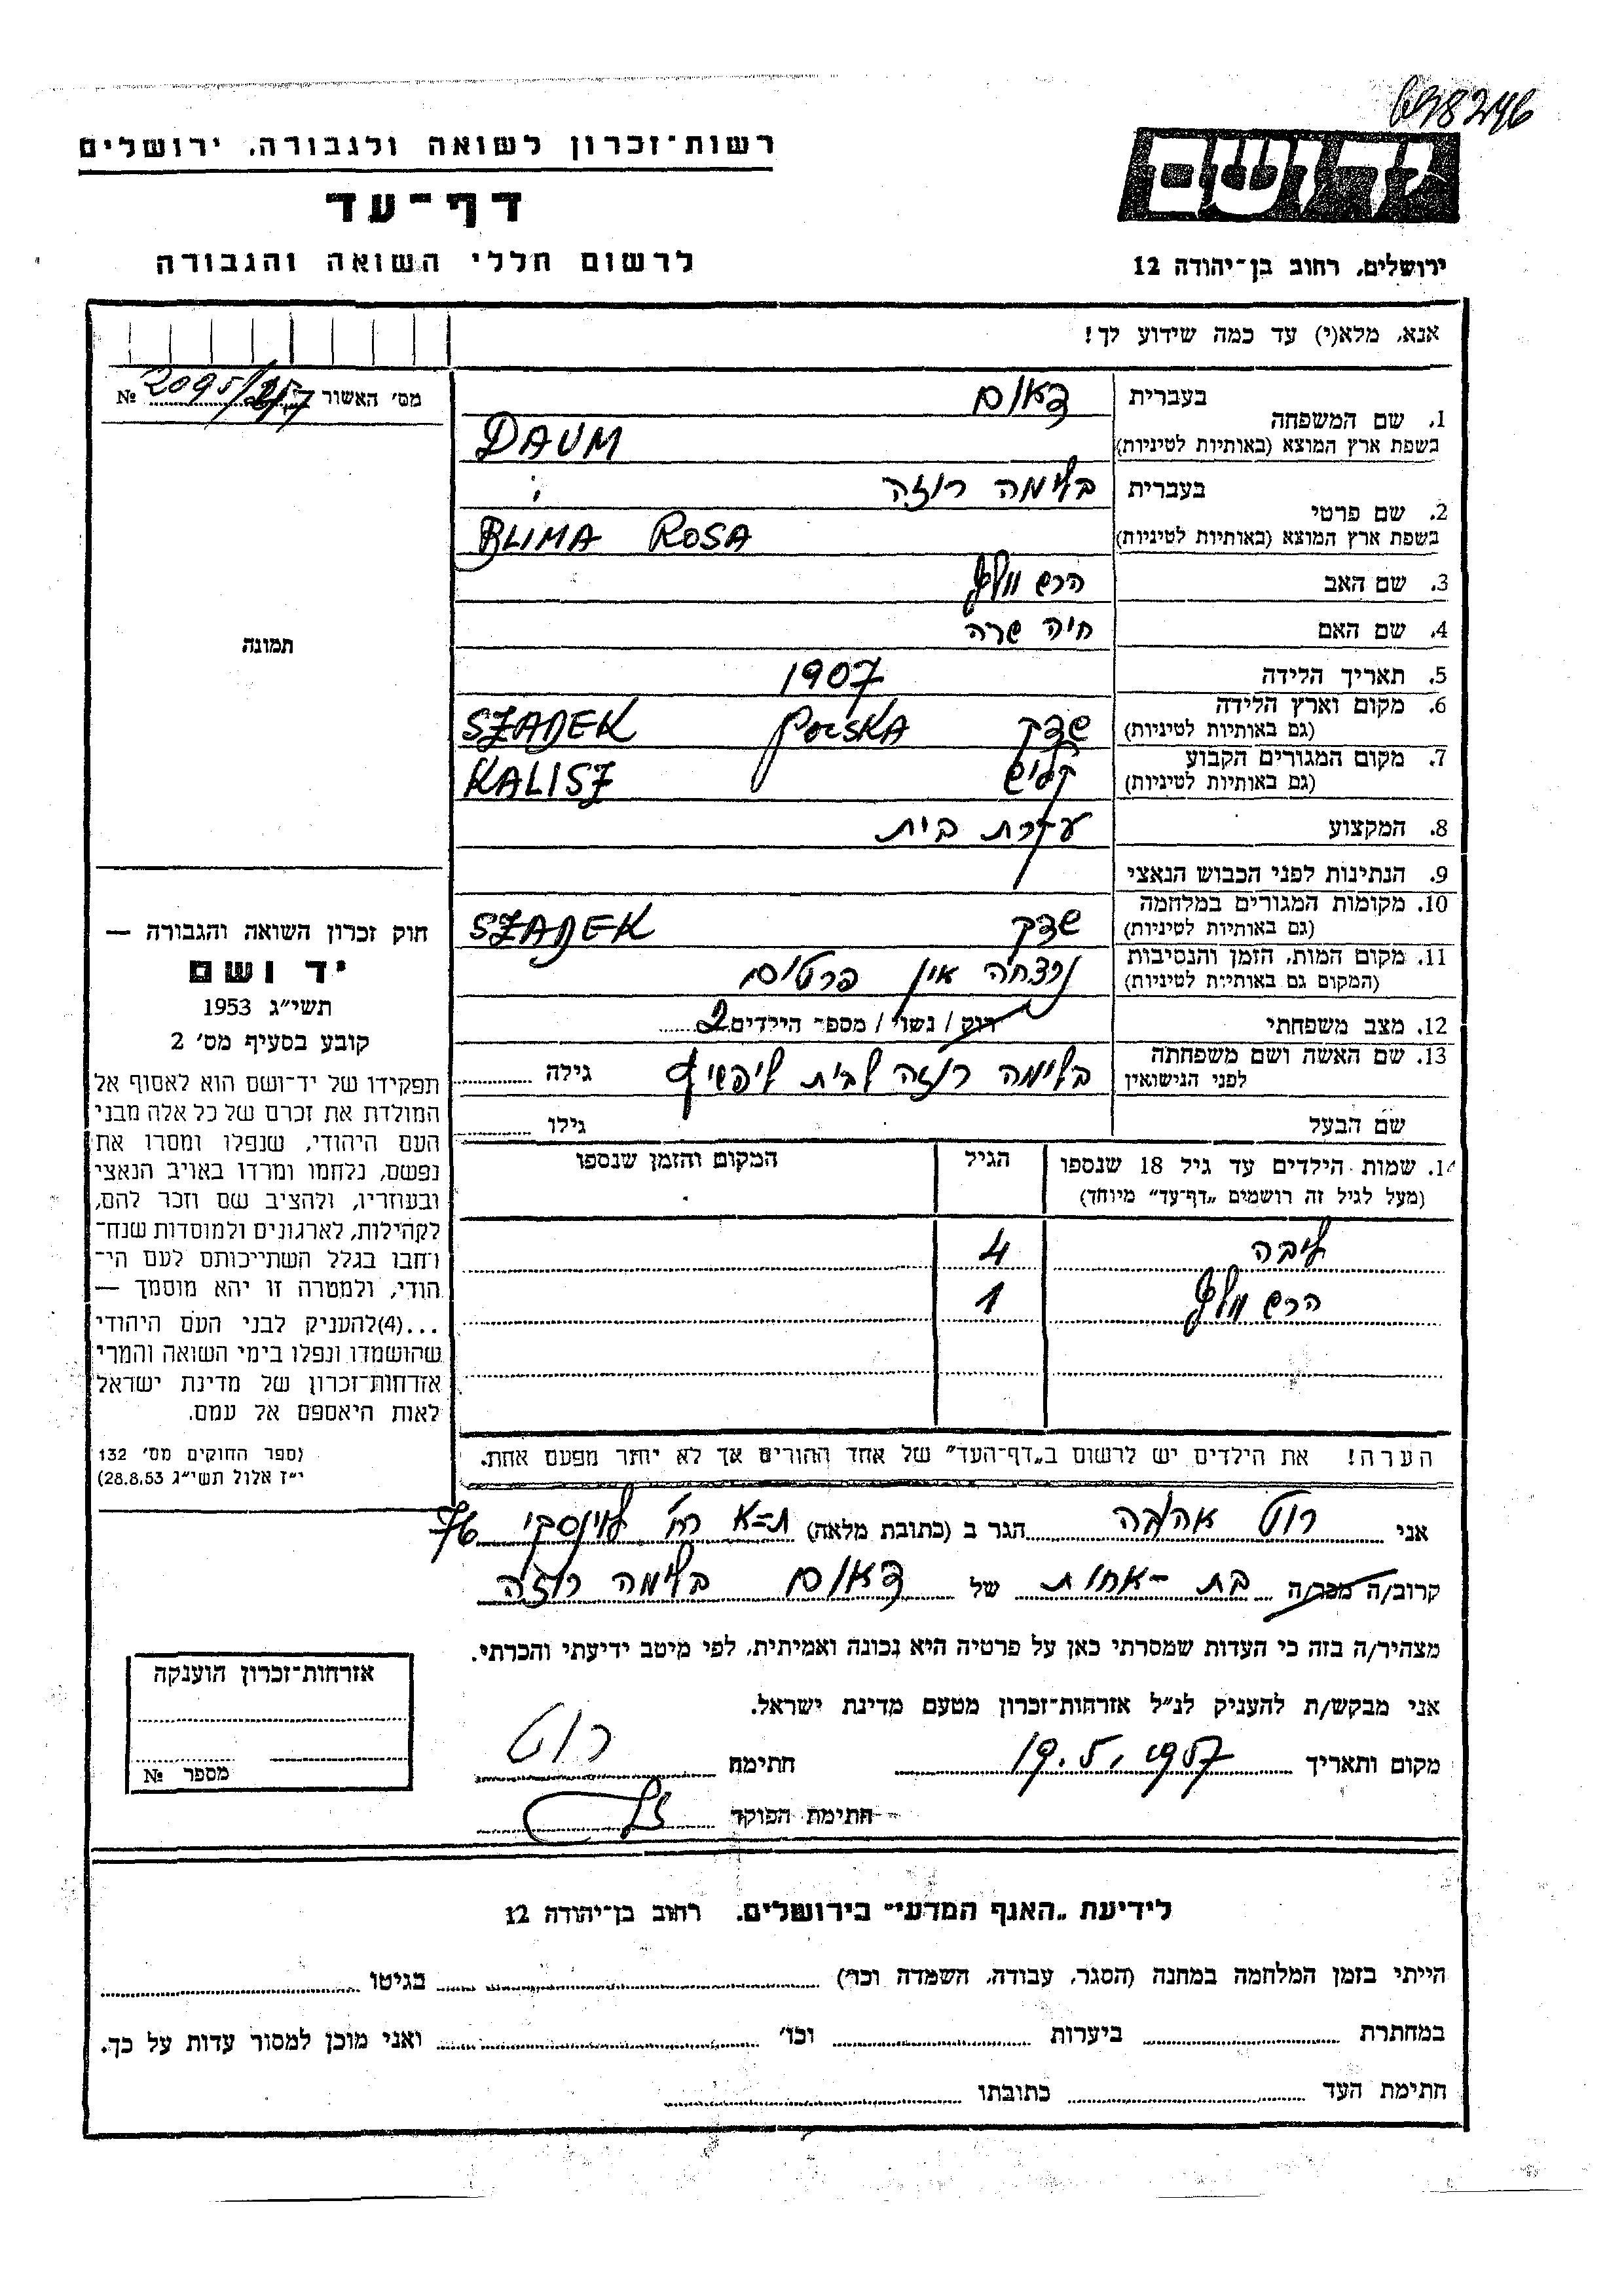 638246
רשות־זכרון לשואה ולגבורה, ירושלים
יד ושם
דף־עד
לרשום חללי השואה והגבורה
ירושלים, רחוב בן־יהודה 12
אנא, מלא(י) עד כמה שידוע לך!
מס' האשור № 2095/257
1. שם המשפחה בעברית דאום
בשפת ארץ המוצא (באותיות לטיניות) DAUM
2. שם פרטי בעברית בלימה רוזה
בשפת ארץ המוצא (באותיות לטיניות) BLIMA ROSA
3. שם האב הרש וולף
4. שם האם חיה שרה
5. תאריך הלידה 1907
6. מקום וארץ הלידה (גם באותיות לטיניות) שדק POLSKA SZADEK
7. מקום המגורים הקבוע (גם באותיות לטיניות) קליש KALISZ
8. המקצוע עקרת בית
9. הנתינות לפני הכבוש הנאצי
10. מקומות המגורים במלחמה (גם באותיות לטיניות) שדק SZADEK
11. מקום המות, הזמן והנסיבות (המקום גם באותיות לטיניות) נרצחה אין פרטים
12. מצב משפחתי רוק / נשוי / מספר הילדים 2
13. שם האשה ושם משפחתה לפני הנישואין בלימה רוזה לבית ליפשיץ גילה
שם הבעל גילו
14. שמות הילדים עד גיל 18 שנספו (מעל לגיל זה רושמים „דף־עד" מיוחד) הגיל המקום והזמן שנספו
ליבה 4
הרש וולף 1
הערה! את הילדים יש לרשום ב„דף־העד" של אחד ההורים אך לא יותר מפעם אחת.
תמונה
חוק זכרון השואה והגבורה —
יד ושם
תשי"ג 1953
קובע בסעיף מס' 2
תפקידו של יד־ושם הוא לאסוף אל
המולדת את זכרם של כל אלה מבני
העם היהודי, שנפלו ומסרו את
נפשם, נלחמו ומרדו באויב הנאצי
ובעוזריו, ולהציב שם וזכר להם,
לקהילות, לארגונים ולמוסדות שנח־
רבו בגלל השתייכותם לעם הי־
הודי, ולמטרה זו יהא מוסמך —
...(4)להעניק לבני העם היהודי
שהושמדו ונפלו בימי השואה והמרי
אזרחות־זכרון של מדינת ישראל
לאות היאספם אל עמם.
(ספר החוקים מס' 132
י"ז אלול תשי"ג 28.8.53)
אני רוט אהובה הגר ב (כתובת מלאה) ת-א רח' לוינסקי 76
קרוב/ה מכר/ה בת-אחות של דאום בלימה רוזה
מצהיר/ה בזה כי העדות שמסרתי כאן על פרטיה היא נכונה ואמיתית, לפי מיטב ידיעתי והכרתי.
אני מבקש/ת להעניק לנ"ל אזרחות־זכרון מטעם מדינת ישראל.
מקום ותאריך 19.5.1957 חתימה רוט
חתימת הפוקד
אזרחות־זכרון הוענקה
מספר №
לידיעת „האגף המדעי" בירושלים, רחוב בן־יהודה 12
הייתי בזמן המלחמה במחנה (הסגר, עבודה, השמדה וכו') בגיטו
במחתרת ביערות וכו' ואני מוכן למסור עדות על כך.
חתימת העד כתובתו